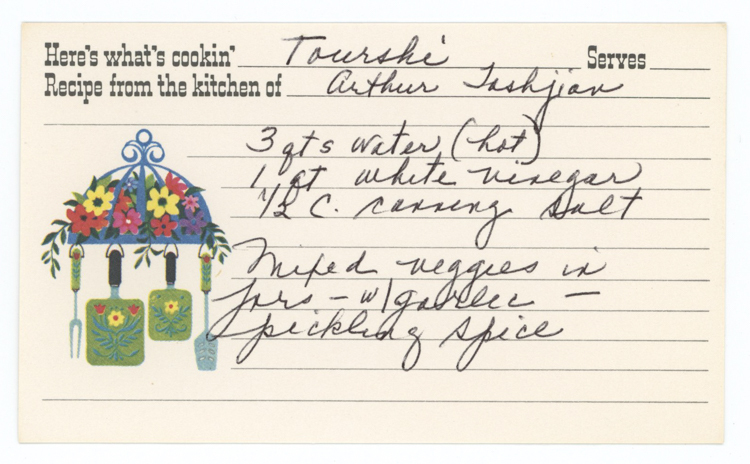 Here's what's cookin' Tourshi Serves
Recipe from the kitchen of Arthur Toshjian
3 qts water (hot)
1 qt white vinegar
1/2 C. canning salt
Mixed veggies in
jars - w/garlic -
pickling spice